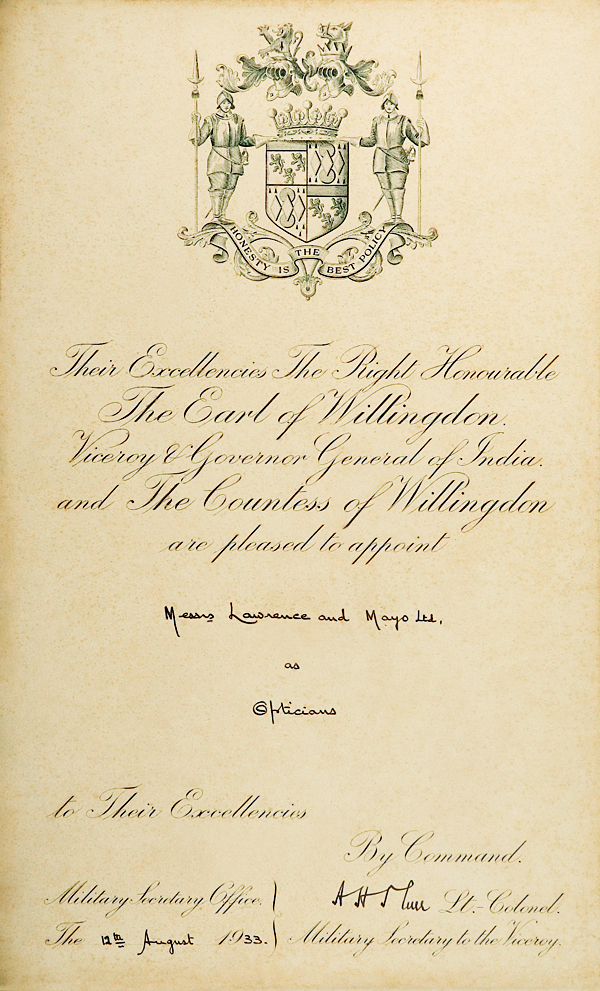 HONESTY IS THE BEST POLICY
Their Excellencies The Right Honourable
The Earl of Willingdon.
Viceroy & Governor General of India.
and The Countess of Willingdon
are pleased to appoint
Messrs Lawrence and Mayo Ltd.
as
Opticians
to Their Excellencies
By Command.
Military Secretary Office.
Lt.-Colonel.
The 12th August 1933.
Military Secretary to the Viceroy.